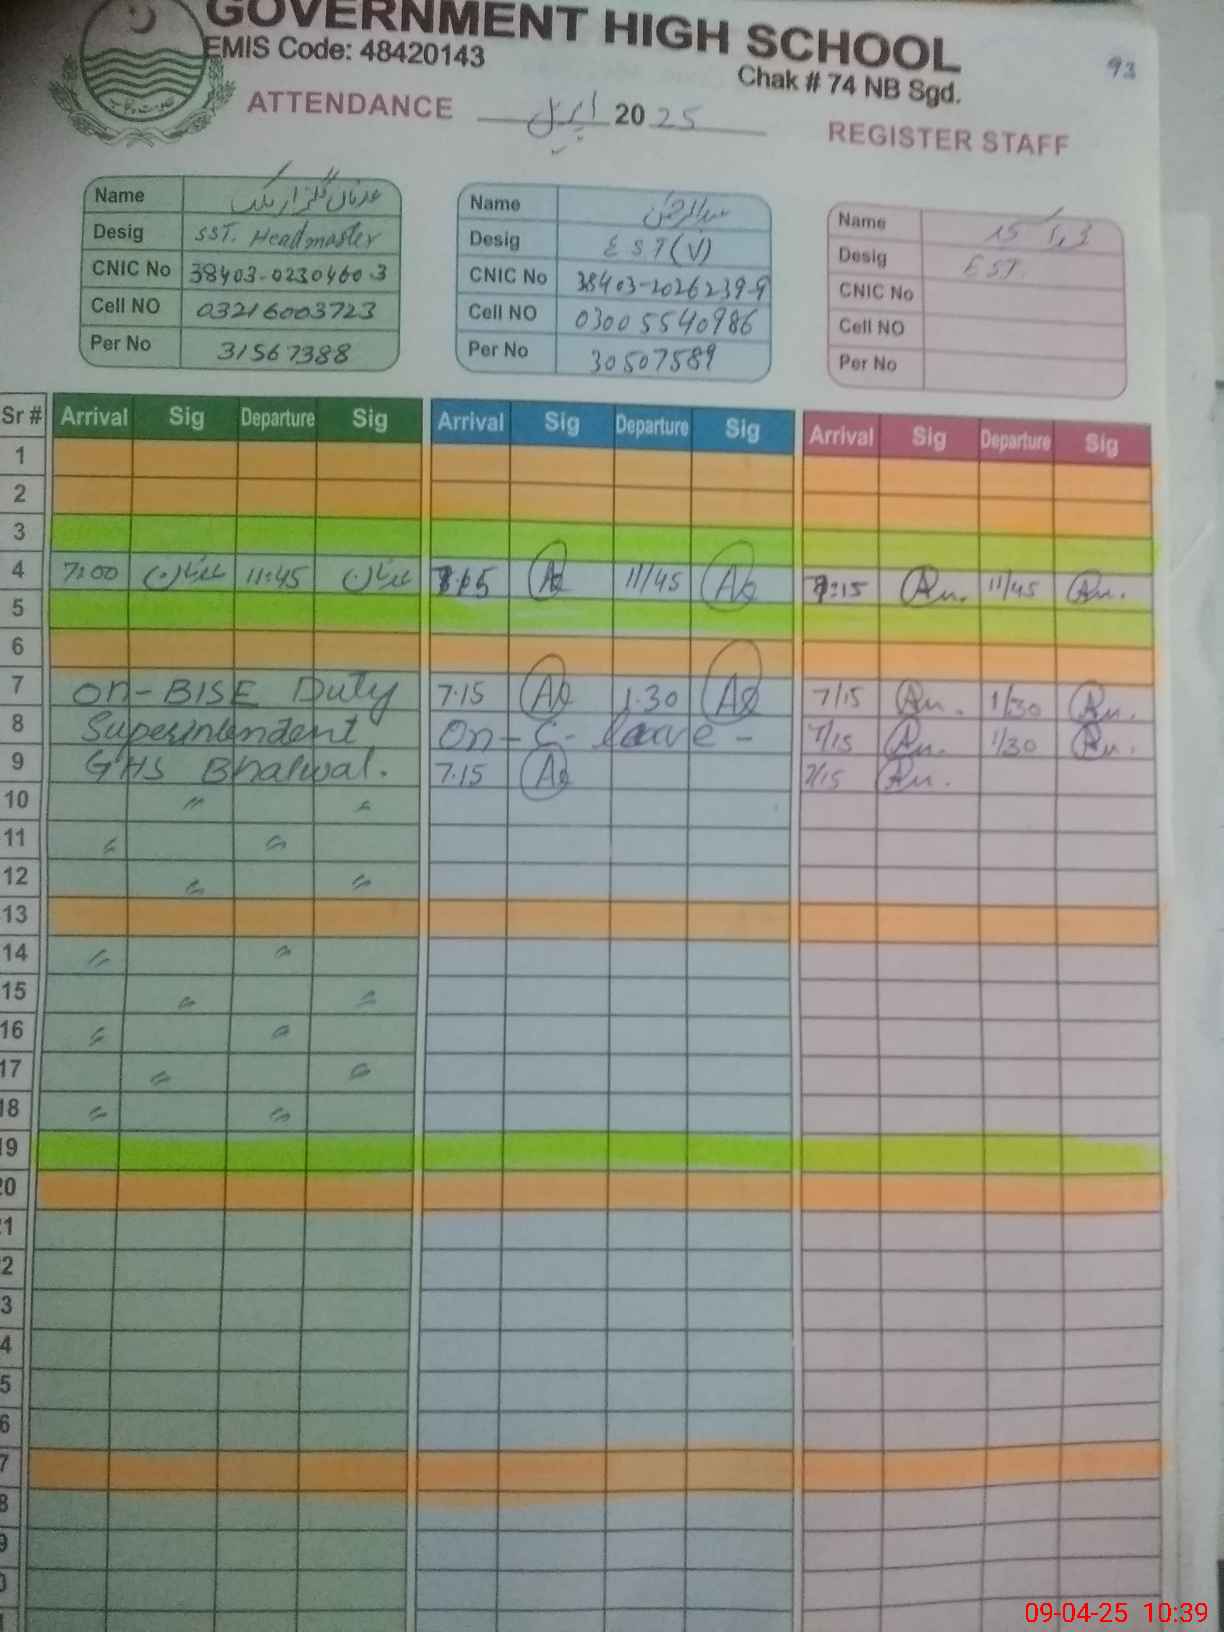 GOVERNMENT HIGH SCHOOL
EMIS Code: 48420143
Chak # 74 NB Sgd.
93
ATTENDANCE اپریل 2025 REGISTER STAFF
Name عدنان گلزار ملک
Desig SST. Headmaster
CNIC No 38403-0230460-3
Cell NO 03216003723
Per No 31567388
Name
Desig EST(V)
CNIC No 38403-2026239-9
Cell NO 03005540986
Per No 30507589
Name
Desig EST
CNIC No
Cell NO
Per No
Sr # Arrival Sig Departure Sig Arrival Sig Departure Sig Arrival Sig Departure Sig
1
2
3
4 7:00 عدنان 11:45 عدنان 11/45 :15 11/45
5
6
7 On-BISE Duty 7.15 1.30 7/15 1/30
8 Superintendent On-C-leave- 7/15 1/30
9 GHS Bhalwal. 7.15 7/15
10 〃 〃
11 〃 〃
12 〃 〃
13
14 〃 〃
15 〃 〃
16 〃 〃
17 〃 〃
18 〃 〃
19
20
1
2
3
4
5
6
7
8
9
09-04-25 10:39